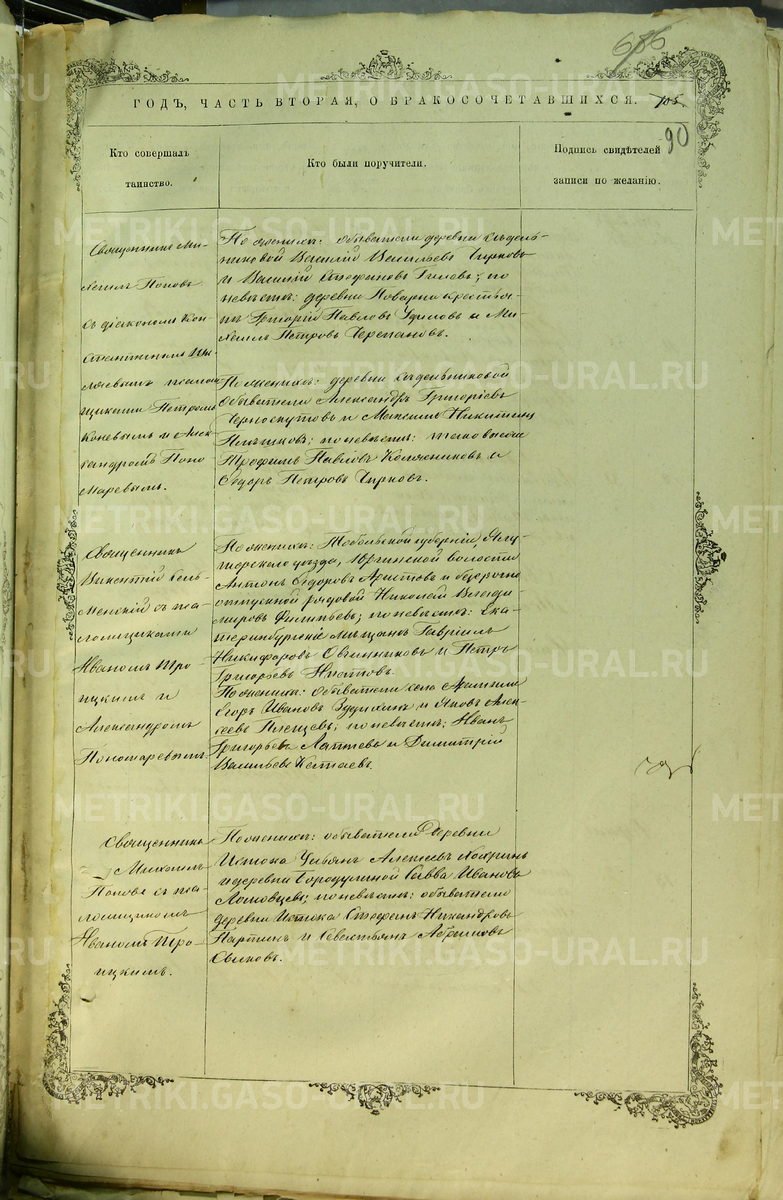 686
ГОДЪ, ЧАСТЬ ВТОРАЯ, О БРАКОСОЧЕТАВШИХСЯ.
105
90
Кто совершалъ
таинство.
Кто были поручители.
Подпись свидѣтелей
записи по желанію.
Священникъ Ми-
хаилъ Поповъ
съ діакономъ Кон-
стантиномъ
псалом-
щиками Петромъ
Коневымъ и Алек-
сандромъ Поно-
маревымъ.
По женихѣ: обыватели деревни
Василій Васильевъ Чирковъ
и Василій Стефановъ Гилевъ; по
невѣстѣ: деревни крестья-
не Григорій Павловъ и Ми-
хаилъ Петровъ Черепановъ.
По женихѣ: деревни
обыватели Александръ Григорьевъ
Черноскутовъ и Максимъ Никитинъ
Плѣшковъ; по невѣстѣ: таковые же
Трофимъ Павловъ и
Ѳедоръ Петровъ Чирковъ.
Священникъ
Викентій
съ пса-
ломщиками
Иваномъ Тро-
ицкимъ и
Александромъ
Пономаревымъ
По женихѣ: Тобольской губерніи, Ялу-
торскаго уѣзда, Юргинской волости
Антонъ Ѳедоровъ Аристовъ и безсрочно
отпускной рядовой Николай Влади-
мировъ Филипьевъ; по невѣстѣ: Ека-
теринбургскіе мѣщане Гавріилъ
Никифоровъ Овчинниковъ и Петръ
Григорьевъ
По женихѣ: обыватели села Арамиля
Егоръ Ивановъ и Яковъ Алек-
сеевъ Плещевъ; по невѣстѣ: Иванъ
Григорьевъ Лаптевъ и Димитрій
Васильевъ Костаевъ.
Священникъ
Михаилъ
Поповъ съ пса-
ломщикомъ
Иваномъ Тро-
ицкимъ.
По женихѣ: обыватели деревни
Истока Ульянъ Алексѣевъ
и деревни Бородулиной Савва Ивановъ
Ломовцевъ; по невѣстѣ: обыватели
деревни Истока Стефанъ Никандровъ
Партинъ и Севастьянъ Абрамовъ
METRIKI.GASO-URAL.RU